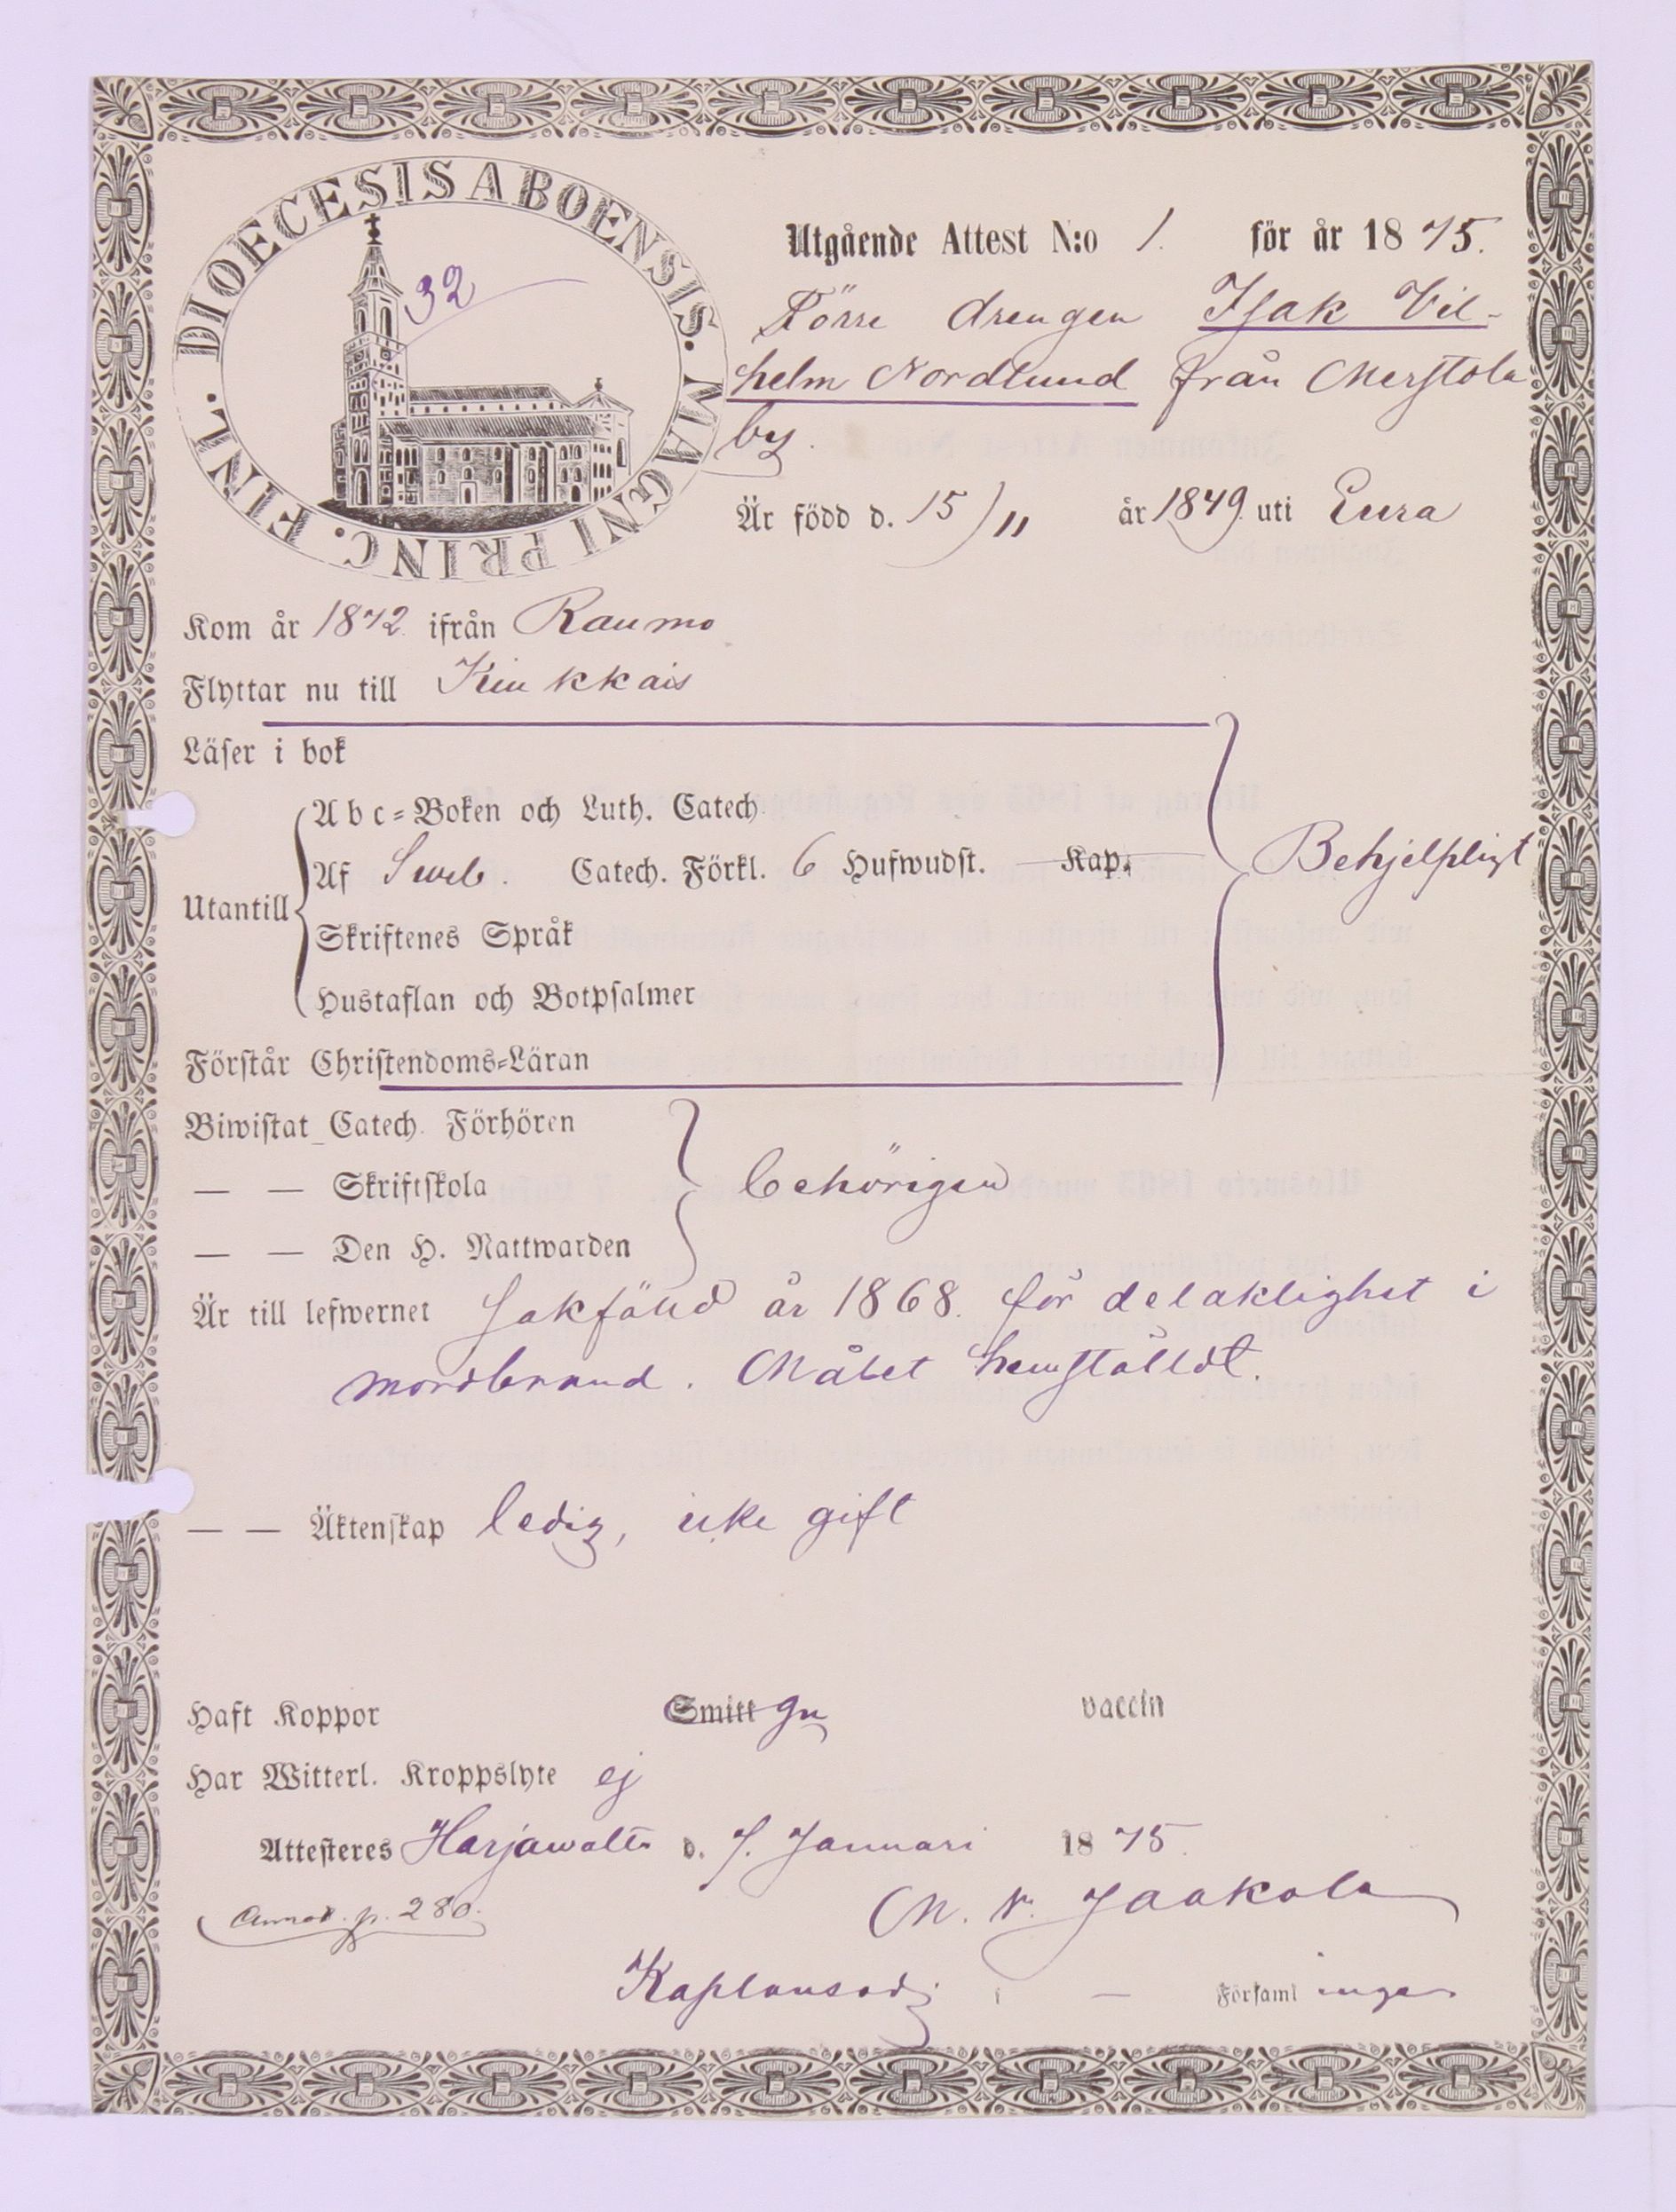 DIOECESIS ABOENSIS. MAGNI PRINC. FINL.
32
Utgående Attest N:o 1. för år 1875.
Förre drengen Isak Vil-
helm Nordlund från Merstola
by.
Är född d. 15/11 år 1849 uti Eura
Kom år 1872 ifrån Raumo
Flyttar nu till Kiukkais
Läser i bok
Abc-Boken och Luth. Catech.
Utantill Af Sveb. Catech. Förkl. 6 Hufwudst. Kap. Behjelpligt
Skriftenes Språk
Hustaflan och Botpsalmer
Förstår Christendoms-Läran
Biwistat Catech. Förhören
— — Skriftskola behörigen
— — Den H. Nattwarden
Är till lefwernet sakfälld år 1868. för delaktighet i
mordbrand. Målet hemställdt.
— — Äktenskap ledig, icke gift
Haft Koppor Smitt gm vaccin
Har Witterl. Kroppslyte ej
Attesteres Harjawalta d. 7. Januari 1875.
Annot. p. 280. M. V. Jaakola
Kaplansadj. i — Församlingen